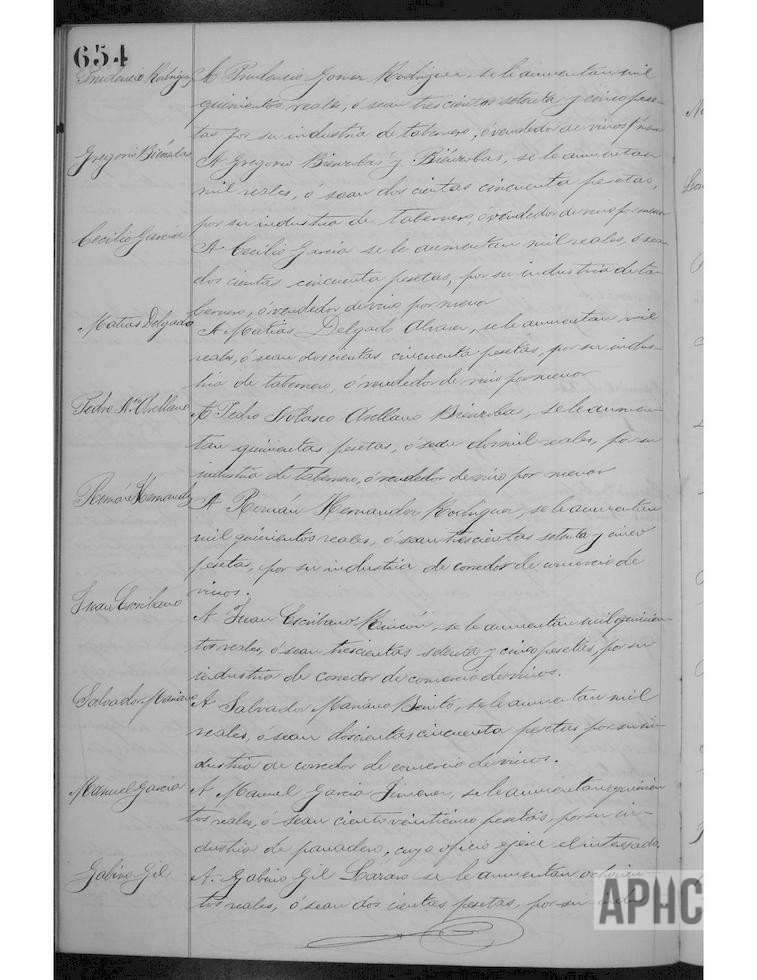 654
Prudencio Rodríguez A Prudencio Gomez Rodriguez, se le aumentan mil
quinientos reales, ó sean trescientas setenta y cinco pese-
tas por su industria de tabernero, ó vendedor de vinos por
Gregorio Biénzobas A Gregorio Bienzobas y Biénzobas, se le aumentan
mil reales, ó sean dos cientas cincuenta pesetas,
por su industria de tabernero, ó vendedor de vino por menor
Cecilio Garcia A Cecilio Garcia se le aumentan mil reales, ó sean
dos cientas cincuenta pesetas, por su industria de ta-
bernero, ó vendedor de vino por menor
Matias Delgado A Matias Delgado Alvarez, se le aumentan mil
reales, ó sean dos cientas cincuenta pesetas, por su indus-
tria de tabernero, ó vendedor de vino por menor
Pedro N. Arellano A Pedro Nolasco Arellano Bienzoba, se le aumen-
tan quinientas pesetas, ó sean dos mil reales, por su
industria de tabernero, ó vendedor de vino por menor
Román Hernandz A Román Hernandez Rodriguez, se le aumentan
mil quinientos reales, ó sean trescientas setenta y cinco
pesetas, por su industria de corredor de comercio de
vinos.
Juan Escribano A Juan Escribano Rincón, se le aumentan mil quinien-
tos reales, ó sean trescientas setenta y cinco pesetas, por su
industria de corredor de comercio de vinos.
Salvador Mariano A Salvador Mariano Benito, se le aumentan mil
reales, ó sean doscientas cincuenta pesetas por su in-
dustria de corredor de comercio de vinos.
Manuel Garcia A Manuel Garcia Jimenez, se le aumentan quinien-
tos reales, ó sean ciento veinticinco pesetas, por su in-
dustria de panadero, cuyo oficio ejerce el interesado.
Gabino Gil A Gabino Gil Lázaro se le aumentan ochocien-
tos reales, ó sean dos cientas pesetas, por su indus-
APHC